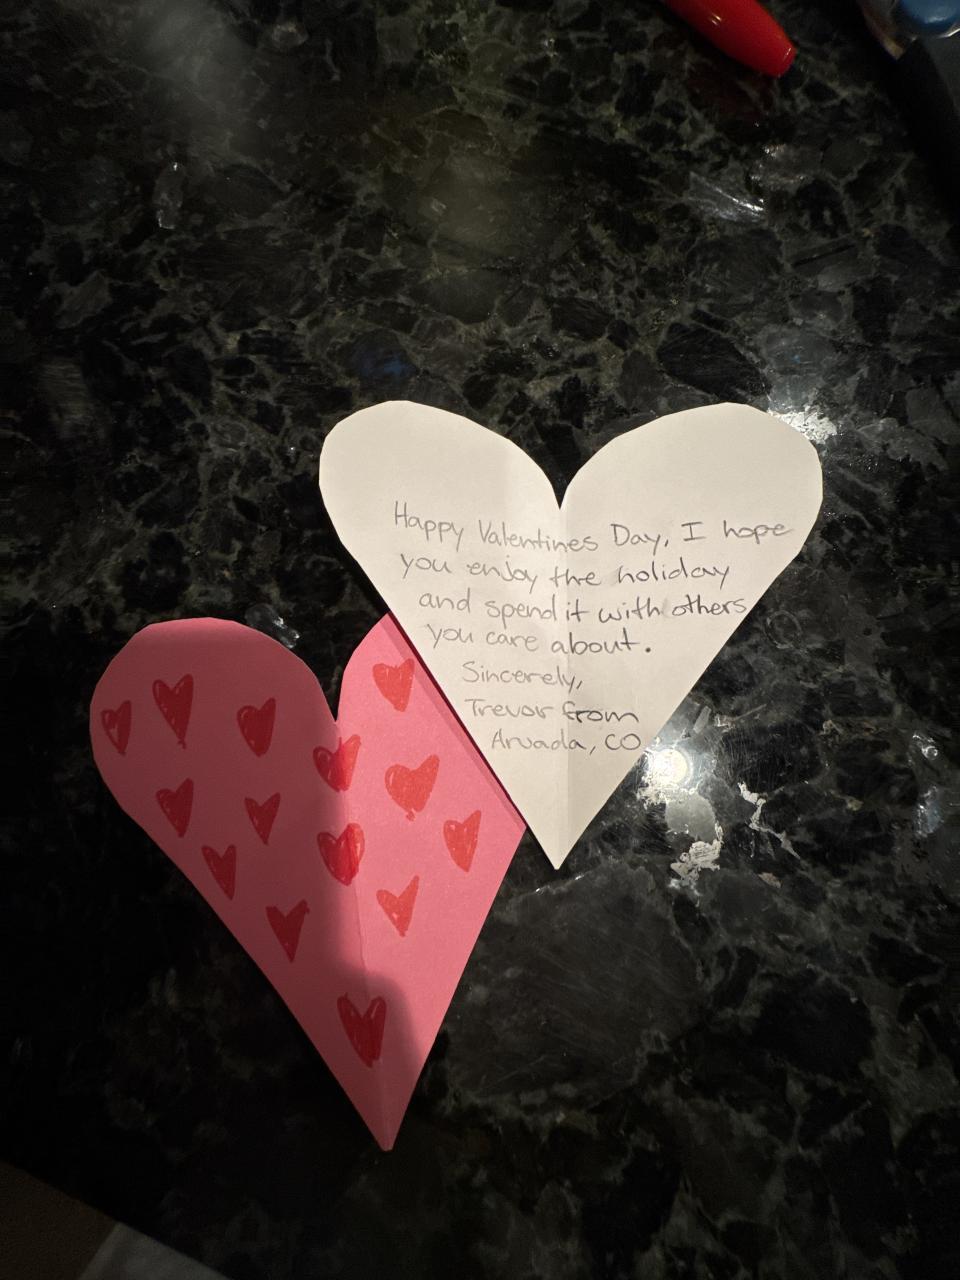 Happy Valentines Day, I hope
you enjoy the holiday
and spend it with others
you care about.
Sincerely,
Trevor from
Arvada, CO